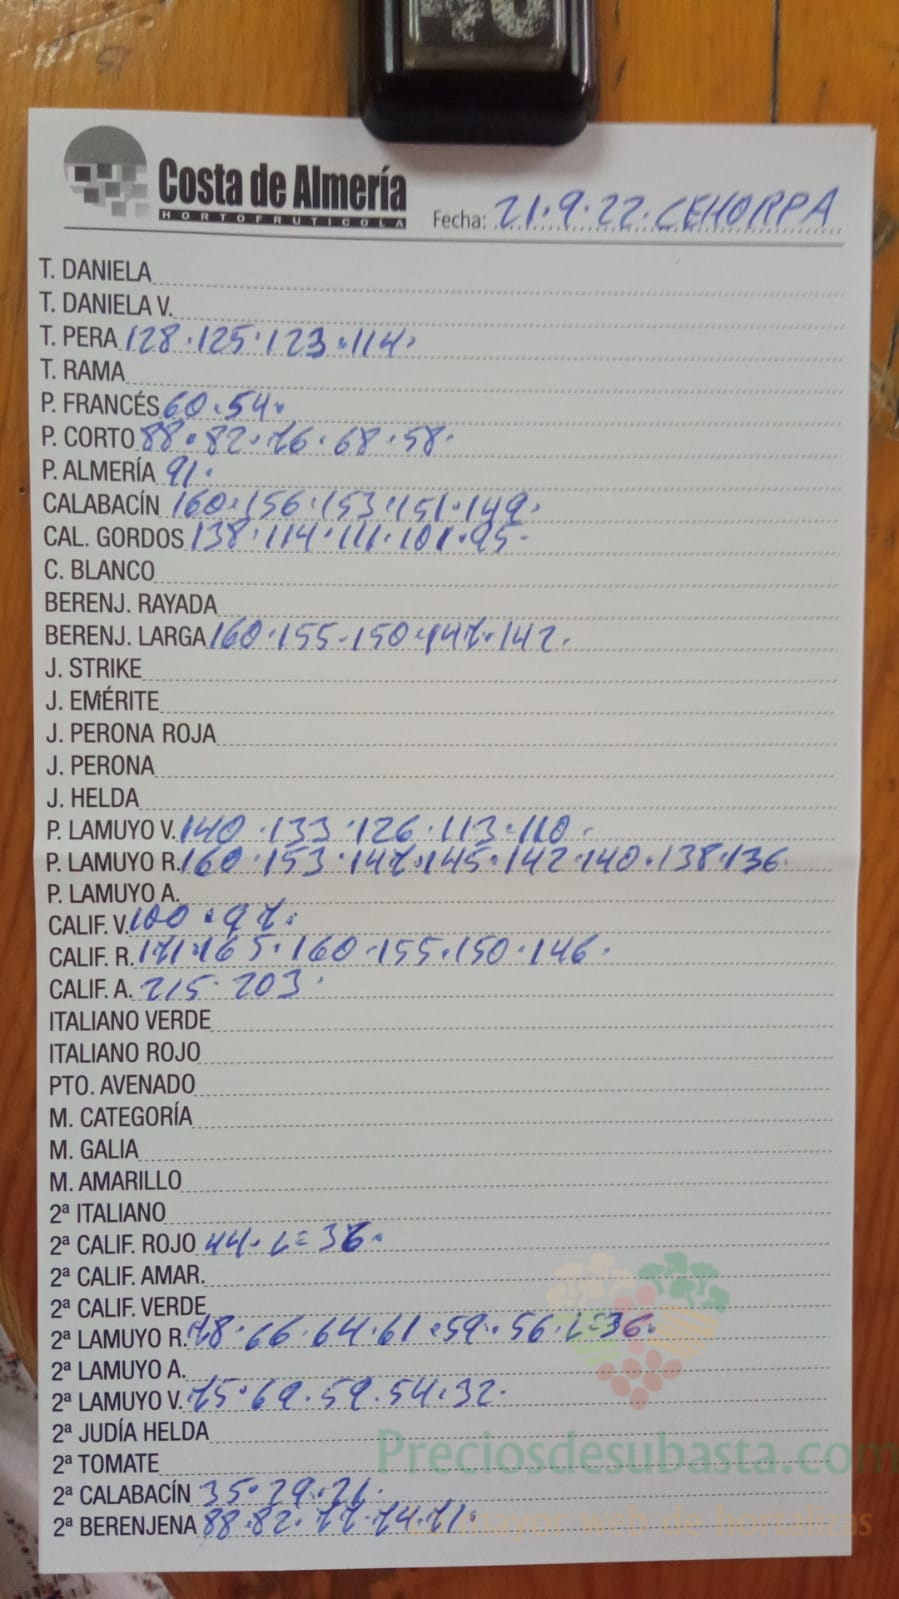 Costa de Almería
HORTOFRUTICOLA
Fecha: 21.9.22. CEHORPA
T. DANIELA
T. DANIELA V.
T. PERA 128.125.123.114.
T. RAMA
P. FRANCÉS 60.54.
P. CORTO 88.82.76.68.58.
P. ALMERÍA 91.
CALABACÍN 160.156.153.151.149.
CAL. GORDOS 138.114.111.101.95.
C. BLANCO
BERENJ. RAYADA
BERENJ. LARGA 160.155.150.147.142.
J. STRIKE
J. EMÉRITE
J. PERONA ROJA
J. PERONA
J. HELDA
P. LAMUYO V. 140.133.126.113.110.
P. LAMUYO R. 160.153.147.145.142.140.138.136.
P. LAMUYO A.
CALIF. V. 100.97.
CALIF. R. 171.165.160.155.150.146.
CALIF. A. 215.203.
ITALIANO VERDE
ITALIANO ROJO
PTO. AVENADO
M. CATEGORÍA
M. GALIA
M. AMARILLO
2ª ITALIANO
2ª CALIF. ROJO 44. L=36.
2ª CALIF. AMAR.
2ª CALIF. VERDE
2ª LAMUYO R. 78.66.64.61.59.56.L=36.
2ª LAMUYO A.
2ª LAMUYO V. 75.69.59.54.32.
2ª JUDÍA HELDA
Preciosdesubasta.com
2ª TOMATE
2ª CALABACÍN 35.29.21.
2ª BERENJENA 88.82.77.74.71.
mayor web de hortalizas